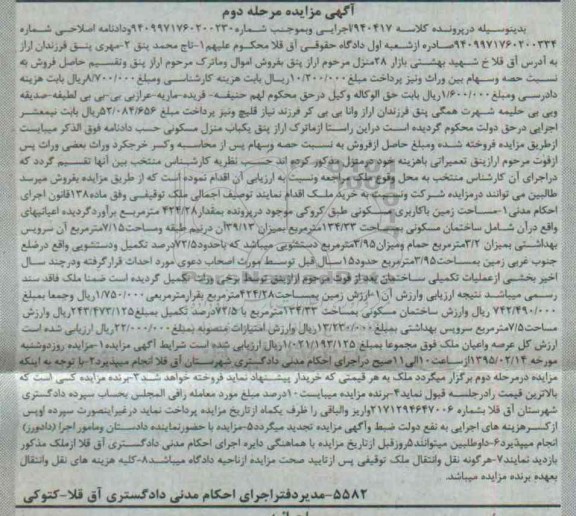 آگهی مزایده مرحله دوم
بدینوسیله درپرونده کلاسه ۹۴۰۴۱۷اجرایی وبموجب شماره۹۴۰۹۹۷۱۷۶۰۲۰۰۲۳۰ودادنامه اصلاحی شماره
۹۴۰۹۹۷۱۷۶۰۲۰۰۳۳۴صادره ازشعبه اول دادگاه حقوقی آق قلا محکوم علیهم۱-تاج محمد پنق ۲-مهری پنق فرزندان اراز
به آدرس آق قلا خ شهید بهشتی بازار ۲۸منزل مرحوم اراز پنق بفروش اموال وماترک مرحوم اراز پنق وتقسیم حاصل فروش به
نسبت حصه وسهام بین وراث ونیز پرداخت مبلغ ۱۰/۲۰۰/۰۰۰ریال بابت هزینه کارشناسی ومبلغ۸/۷۰۰/۰۰۰ریال بابت هزینه
دادرسی ومبلغ۱/۶۰۰/۰۰۰ریال بابت حق الوکاله وکیل درحق محکوم لهم حنیفه- فریده-ماریه-عرازبی بی-بی بی لطیفه-صدیقه
وبی بی حلیمه شهرت همگی پنق فرزندان اراز وانا بی بی کر فرزند نیاز قلیچ ونیز پرداخت مبلغ ۵۲/۰۸۴/۶۵۶ریال بابت نیمعشر
اجرایی درحق دولت محکوم گردیده است دراین راستا ازماترک اراز پنق یکباب منزل مسکونی حسب دادنامه فوق الذکر میبایست
ازطریق مزایده فروخته شده ومبلغ حاصل ازفروش به نسبت حصه وسهام پس از محاسبه وکسر خرجکرد وراث بعضی وراث پس
ازفوت مرحوم ارازپنق تعمیراتی باهزینه خوددرمنزل مذکور کرده اند حسب نظریه کارشناس منتخب بین آنها تقسیم گردد که
دراجرای آن کارشناس منتخب به محل وقوع ملک مراجعه ونسبت به ارزیابی آن اقدام نموده است که از طریق مزایده بفروش میرسد
طالبین می توانند درمزایده شرکت ونسبت به خرید ملک اقدام نمایند توصیف اجمالی ملک توقیفی وفق ماده۱۳۸قانون اجرای
احکام مدنی ۱-مساحت زمین باکاربری مسکونی طبق کروکی موجود درپرونده بمقدار۴۲۴/۲۸ مترمربع برآوردگردیده اعیانیهای
واقع درآن شامل ساختمان مسکونی به مساحت ۱۳۴/۳۳مترمربع بمیزان ۳۹/۱۳آن درنیم طبقه ومساحت۷/۱۵مترمربع آن سرویس
بهداشتی بمیزان ۳/۲مترمربع حمام ومیزان۳/۹۵مترمربع دستشویی میباشد که باحدود۷۲/۵درصد تکمیل ودستشویی واقع درضلع
جنوب غربی زمین بمساحت۳/۹۵مترمربع حدود۱۵سال قبل مورت اصحاب دعوی مورد احداث قرارگرفته ودرچند سال
اخیر بخشی ازعملیات تکمیلی ساختمان بعد از فوت مرحوم ارازپنق توسط برخی وراث تکمیل گردیده است ضمنا ملک فاقد سند
رسمی میباشد نتیجه ارزیابی وارزش آن۱-ارزش زمین بمساحت۴۲۴/۲۸مترمربع بقرارمترمربعی ۱/۷۵۰/۰۰۰ریال وجمعا بمبلغ
۷۴۲/۴۹۰/۰۰۰ ریال وارزش ساختمان مسکونی بمساحت ۱۳۴/۳۳مترمربع با ۷۲/۵درصد تکمیل بمبلغ۲۴۳/۴۷۳/۱۲۵ریال وارزش
مساحت۷/۵مترمربع سرویس بهداشتی بمبلغ۱۳/۲۳۰/۰۰۰ریال وارزش امتیازات منصوبه بمبلغ۲۲/۰۰۰/۰۰۰ریال ارزیابی شده است
ارزش کل عرصه واعیان ملک فوق مجموعا بمبلغ ۱/۰۲۱/۱۹۳/۱۲۵ریال ارزیابی شده است شرایط آگهی مزایده ۱-مزایده روزدوشنبه
مورخه ۱۳۹۵/۰۲/۱۴ازساعت۱۰الی۱۱صبح دراجرای احکام مدنی دادگستری شهرستان آق قلا انجام میپذیرد۲-با توجه به اینکه
مزایده درمرحله دوم برگزار میگردد ملک به هر قیمتی که خریدار پیشنهاد نماید فروخته خواهد شد۳-برنده مزایده کسی است که
بالاترین قیمت رادرجلسه قبول نماید۴-برنده مزایده میبایست ۱۰درصد مبلغ مورد معامله رافی المجلس بحساب سپرده دادگستری
شهرستان آق قلا بشماره ۲۱۷۱۲۹۴۶۴۷۰۰۶واریز والباقی را ظرف یکماه ازتاریخ مزایده پرداخت نماید درغیراینصورت سپرده اوپس
ازکسرهزینه های اجرایی به نفع دولت ضبط وآگهی مزایده تجدید میگردد۵-مزایده با حضورنماینده دادستان ومامور اجرا (دادورز)
انجام میپذیرد۶-داوطلبین میتوانند۵روزقبل ازتاریخ مزایده با هماهنگی دایره اجرای احکام مدنی دادگستری آق قلا ازملک مذکور
بازدید نمایند۷-هرگونه نقل وانتقال ملک توقیفی پس ازتایید صحت مزایده ازناحیه دادگاه میباشد۸-کلیه هزینه های نقل وانتقال
بعهده برنده مزایده میباشد.
۵۵۸۲-مدیردفتراجرای احکام مدنی دادگستری آق قلا-کتوکی